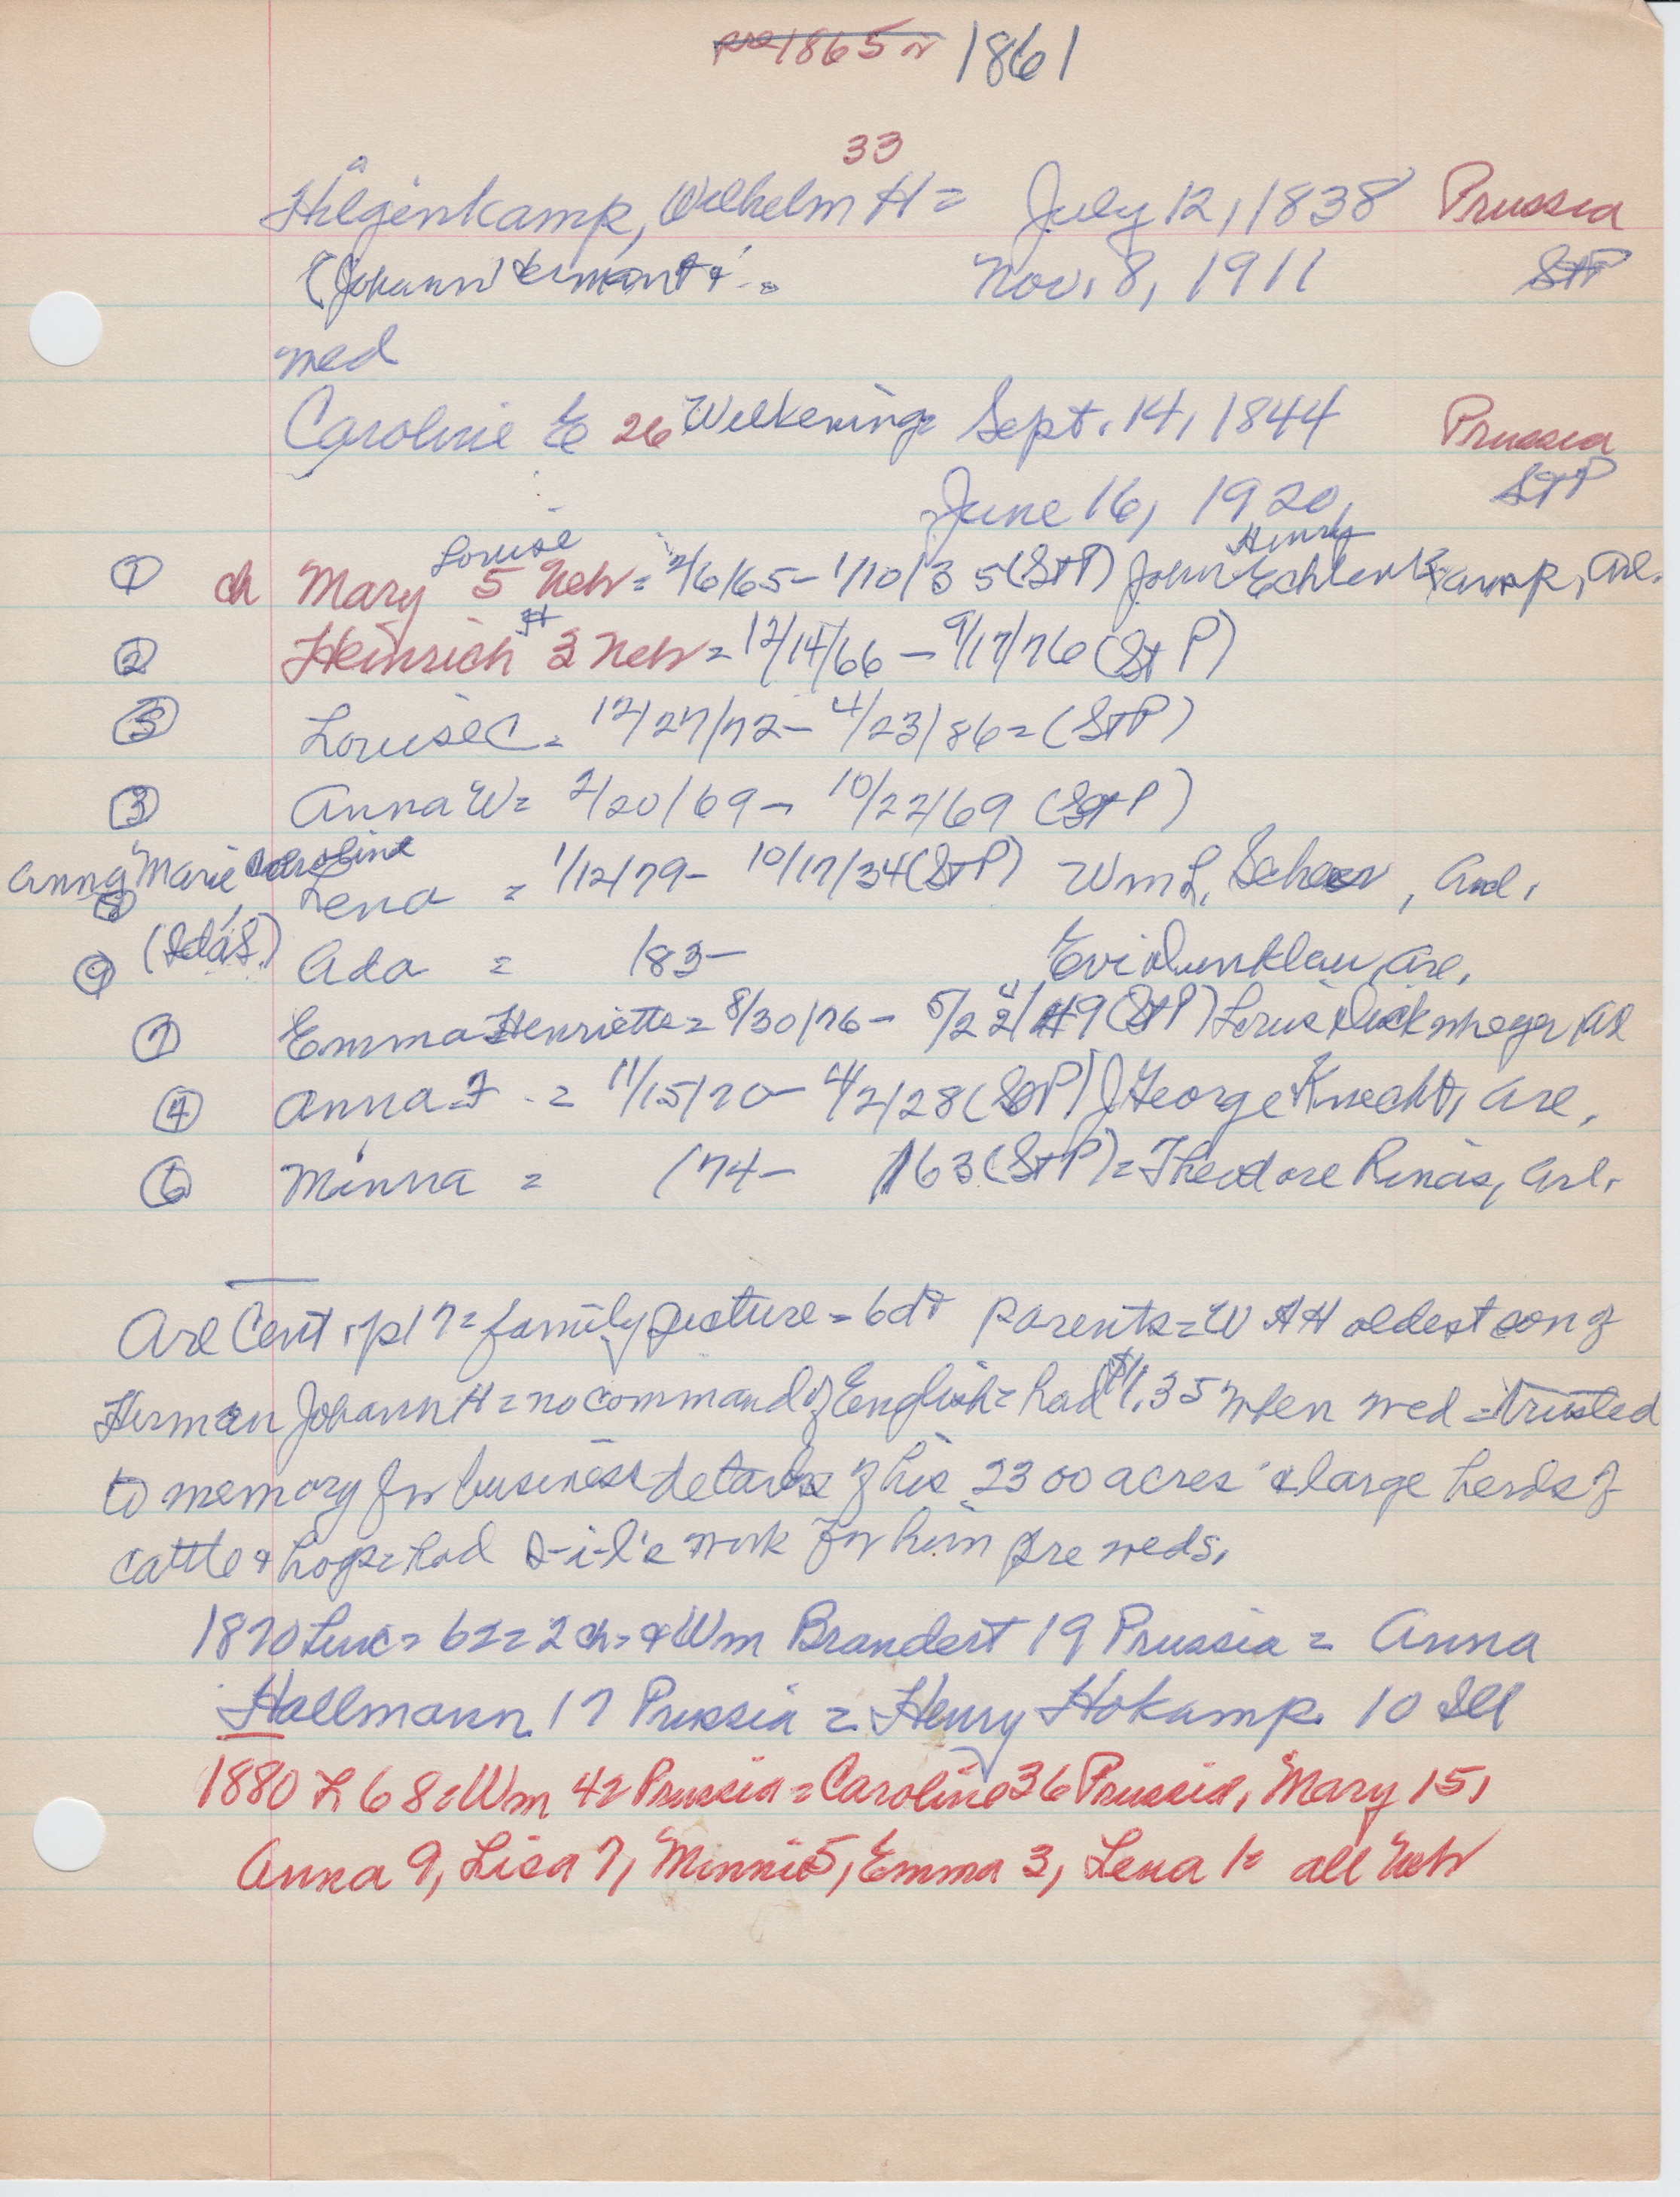 pre 1865 or 1861
33
Hilgenkamp, Wilhelm H = July 12, 1838 Prussia
(Johann Nov. 8, 1911 StP
med
Caroline E 26 Welkening = Sept. 14, 1844 Prussia
June 16, 1920, StP
Louise Henry
① ch Mary 5 Neb = 2/6/65 - 1/10/35 (StP) John Echtenkamp, Arl.
H
② Heinrich 3 Neb = 12/14/66 - 9/17/76 (StP)
⑤ Louise C = 12/27/72 - 4/23/86 = (StP)
③ Anna W = 2/20/69 - 10/22/69 (StP)
Anna Marie Caroline
⑧ Lena = 1/12/79 - 10/17/34 (StP) Wm L. Scheer, Arl.
⑨ (Ida S.) Ada = /83 - Evi Dunklau, Arl.
⑦ Emma Henriette = 8/30/76 - 5/22/49 (StP) Louis Dickmeyer Arl
④ Anna F = 11/15/70 - 4/2/28 (StP) J George Knecht, Arl.
⑥ Minna = /74 - /63 (StP) = Theodore Rinas, Arl.
Arl Cent. p17 = family picture = 6 dt parents = W H H oldest son of
Herman Johann H = no command of English = had $1.35 when wed = trusted
to memory for business details of his 2300 acres & large herds of
cattle & hogs = had s-i-l's work for him pre weds.
1870 Luc = 62 = 2 ch = & Wm Brandert 19 Prussia = Anna
Hallmann 17 Prussia = Henry Hokamp 10 Ill
1880 L 68 = Wm 42 Prussia = Caroline 36 Prussia, Mary 15,
Anna 9, Lisa 7, Minnie 5, Emma 3, Lena 1 = all Neb